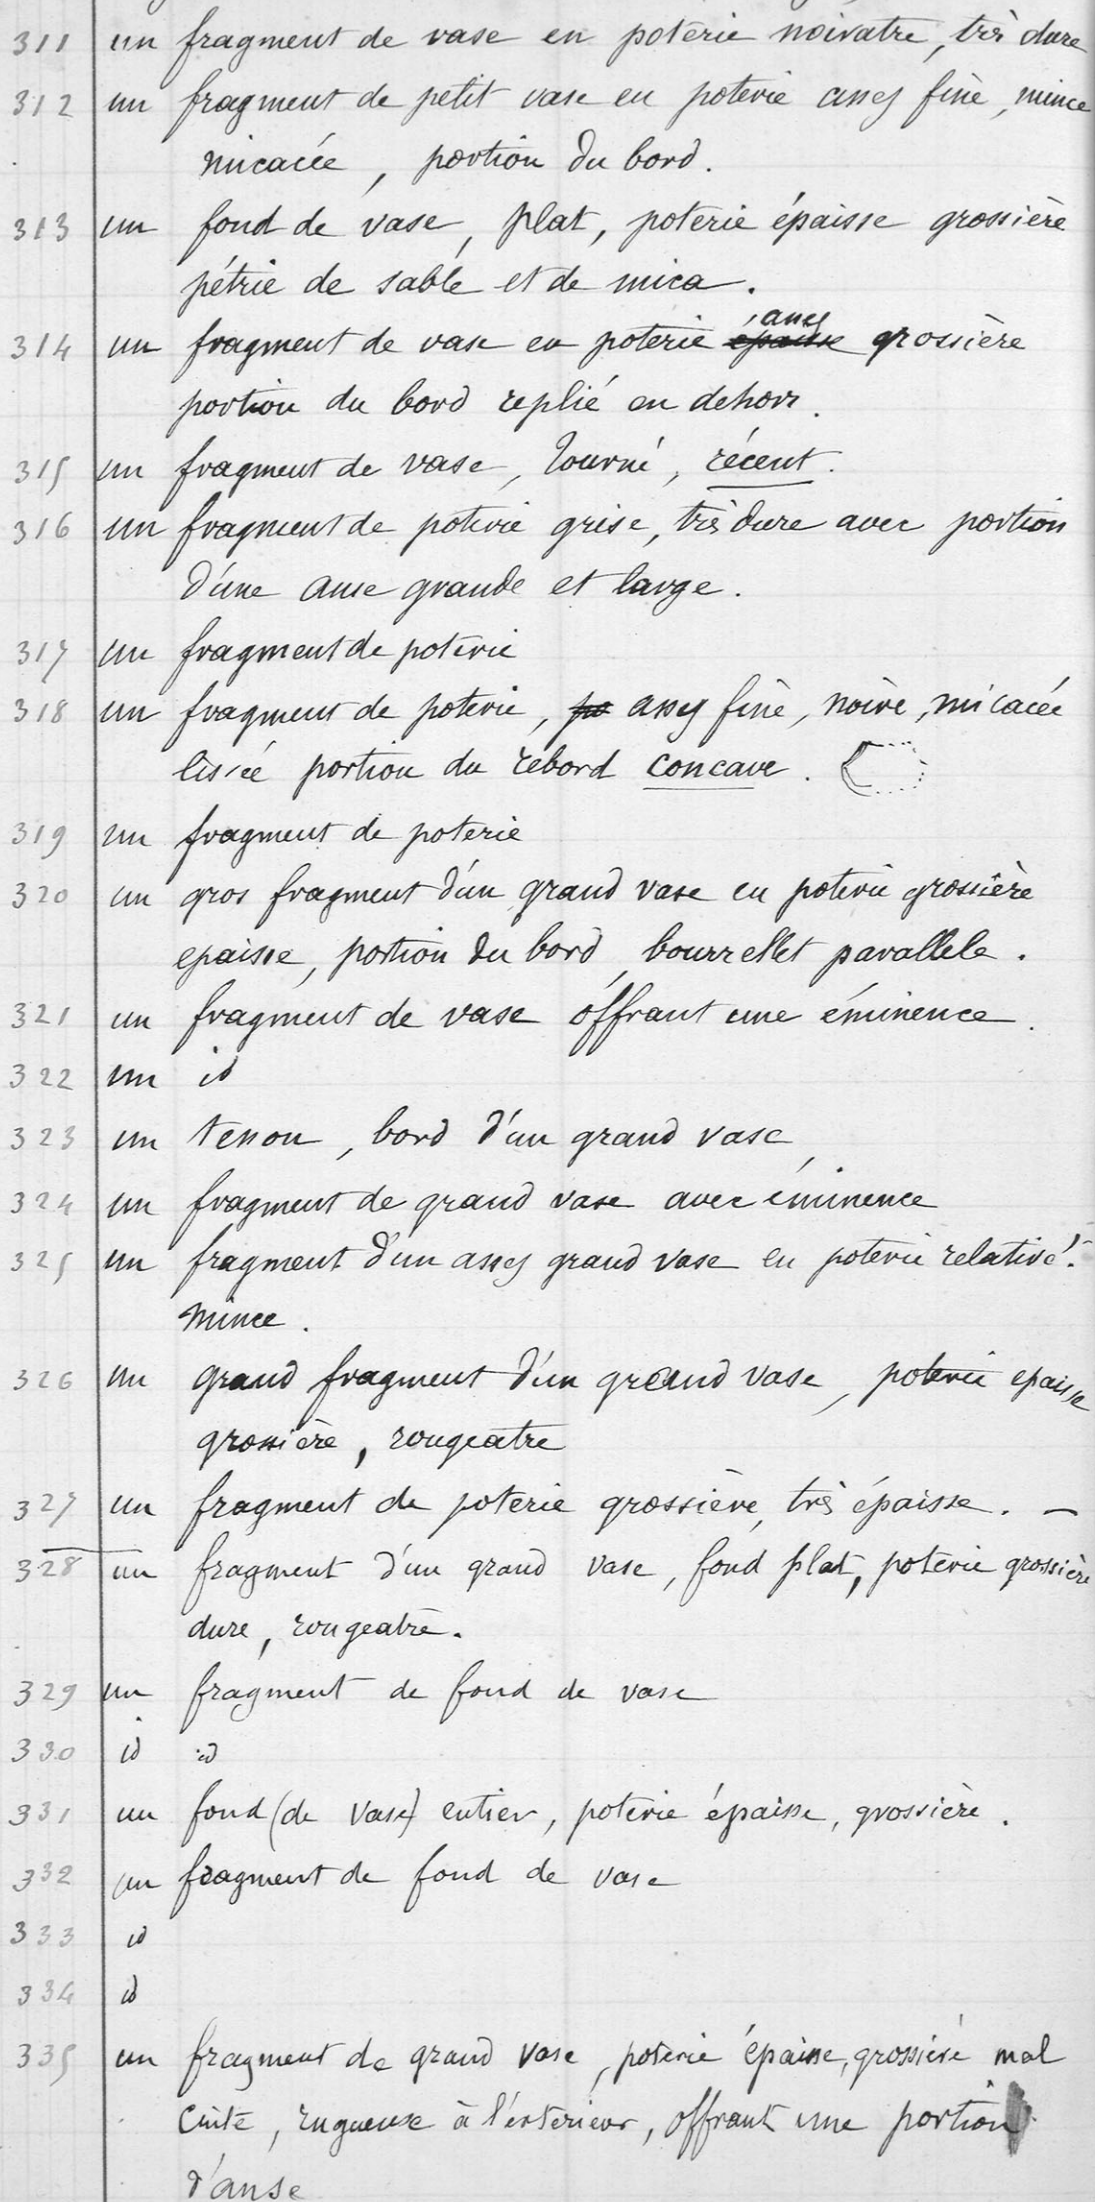 311 un fragment de vase en poterie noiratre, très dure
312 un fragment de petit vase en poterie assez fine, mince
micacée, portion du bord.
313 un fond de vase, plat, poterie épaisse grossière
pétrie de sable et de mica.
314 un fragment de vase en poterie épaisse assez grossière
portion du bord replié en dehors.
315 un fragment de vase, tourné, récent.
316 un fragment de poterie grise, très dure avec portion
d'une anse grande et large.
317 un fragment de poterie
318 un fragment de poterie, po assez fine, noire, micacée
lissée portion du rebord concave.
319 un fragment de poterie
320 un gros fragment d'un grand vase en poterie grossière
epaisse, portion du bord, bourrellet parallele.
321 un fragment de vase offrant une éminence.
322 un id
323 un tesson, bord d'un grand vase,
324 un fragment de grand vase avec éminence
325 un fragment d'un assez grand vase en poterie relativét.
mince.
326 un grand fragment d'un grand vase, poterie epaisse
grossière, rougeatre
327 un fragment de poterie grossière, très épaisse. —
328 un fragment d'un grand vase, fond plat, poterie grossière
dure, rougeatre.
329 un fragment de fond de vase
330 id id
331 un fond (de vase) entier, poterie épaisse, grossière.
332 un fragment de fond de vase
333 id
334 id
335 un fragment de grand vase, poterie épaisse, grossière mal
cuite, rugueuse à l'exterieur, offrant une portion
d'anse